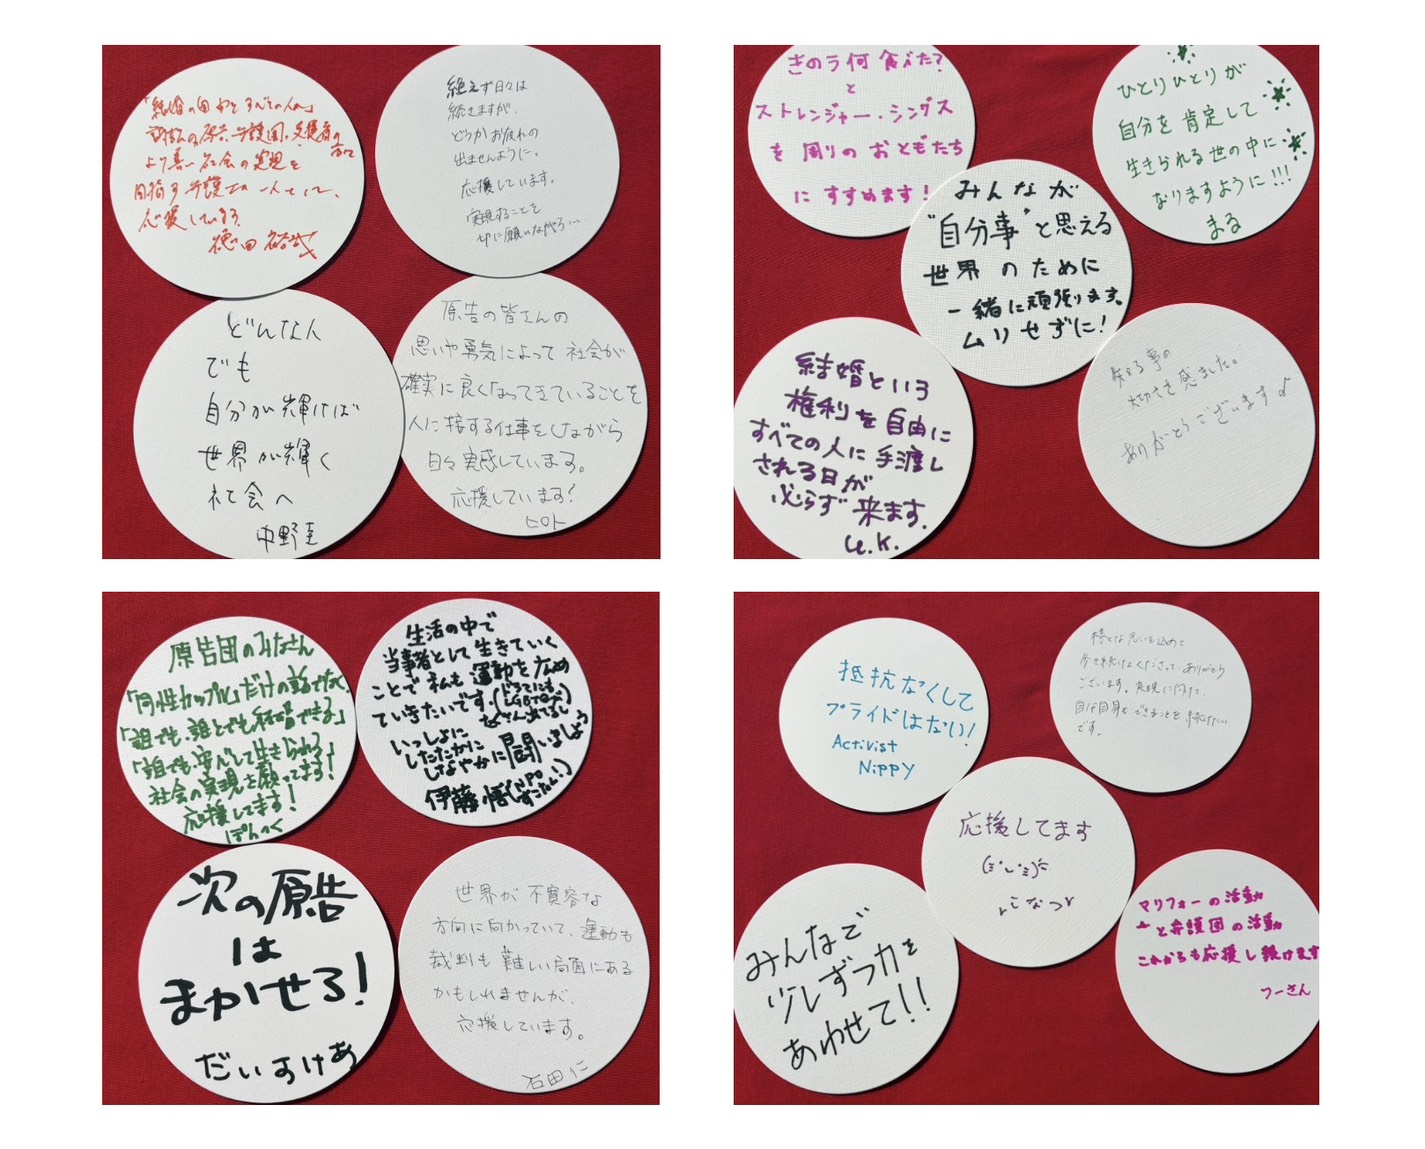 「結婚の自由をすべての人に」
訴訟の原告、弁護団、支援者の方々
より良い社会の実現を
目指す弁護士の一人として、
応援しています
絶えず日々は
続きますが、
どうかお疲れの
出ませんように。
応援しています。
実現することを
切に願いながら…
どんな人
でも
自分が輝けば
世界が輝く
社会へ
中野圭
原告の皆さんの
思いや勇気によって 社会が
確実に良くなってきていることを
人に接する仕事をしながら
日々実感しています。
応援しています!
ヒロト
きのう何食べた?
と
ストレンジャー・シングス
を 周りの おともだち
に すすめます!
ひとりひとりが
自分を肯定して
生きられる世の中に
なりますように!!!
まる
みんなが
"自分事"と思える
世界 のために
一緒に頑張ります。
ムリせずに!
結婚という
権利を自由に
すべての人に手渡し
される日が
必らず来ます.
U.K.
知る事の
大切さを感じました。
ありがとうございます♪
原告団のみなさん
「同性カップル」だけの話でなく、
「誰でも、誰とでも結婚できる」
「誰でも安心して生きられる」
社会の実現を願ってます!
応援してます!
ぽんつく
生活の中で
当事者として生きていく
ことで私も運動を広め
ていきたいです。(どこにでも
LGBTQが
たくさんいるし)
いっしょに
したたかに
しなやかに闘いましょう
伊藤悟(NPO
すこたん!)
次の原告
は
まかせろ!
だいすけあ
世界が不寛容な
方向に向かっていて、運動も
裁判も難しい局面にある
かもしれませんが、
応援しています。
石田仁
抵抗なくして
プライドはない!
Activist
Nippy
様々な思いを込めて
歩き続けてくださって、ありがとう
ございます。実現に向けて、
自分自身もできることを続けたい
です。
応援してます
みんなで
少しずつ力を
あわせて!!
マリフォーの活動
と弁護団の活動
これからも応援し続けます
フーさん